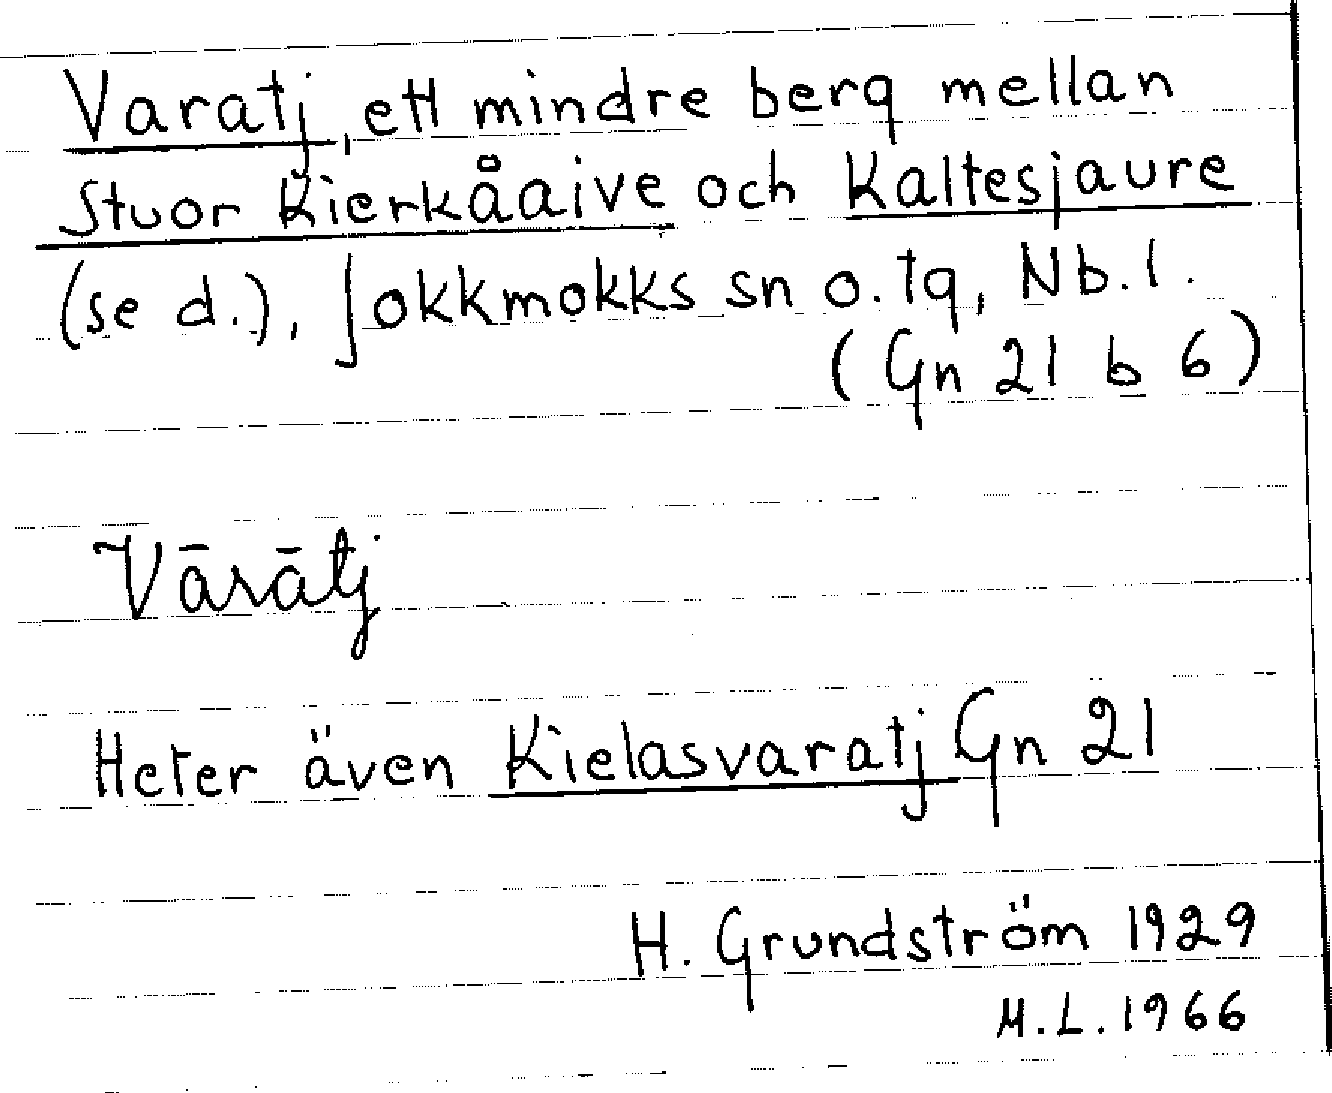 Varatj, ett mindre berg mellan
Stuor Kierkåaive och Kaltesjaure
(se d.), Jokkmokks sn o. tg, Nb. l.
(Gn 21 b 6)
Vārātj
Heter även Kielasvaratj Gn 21
H. Grundström 1929
M.L. 1966